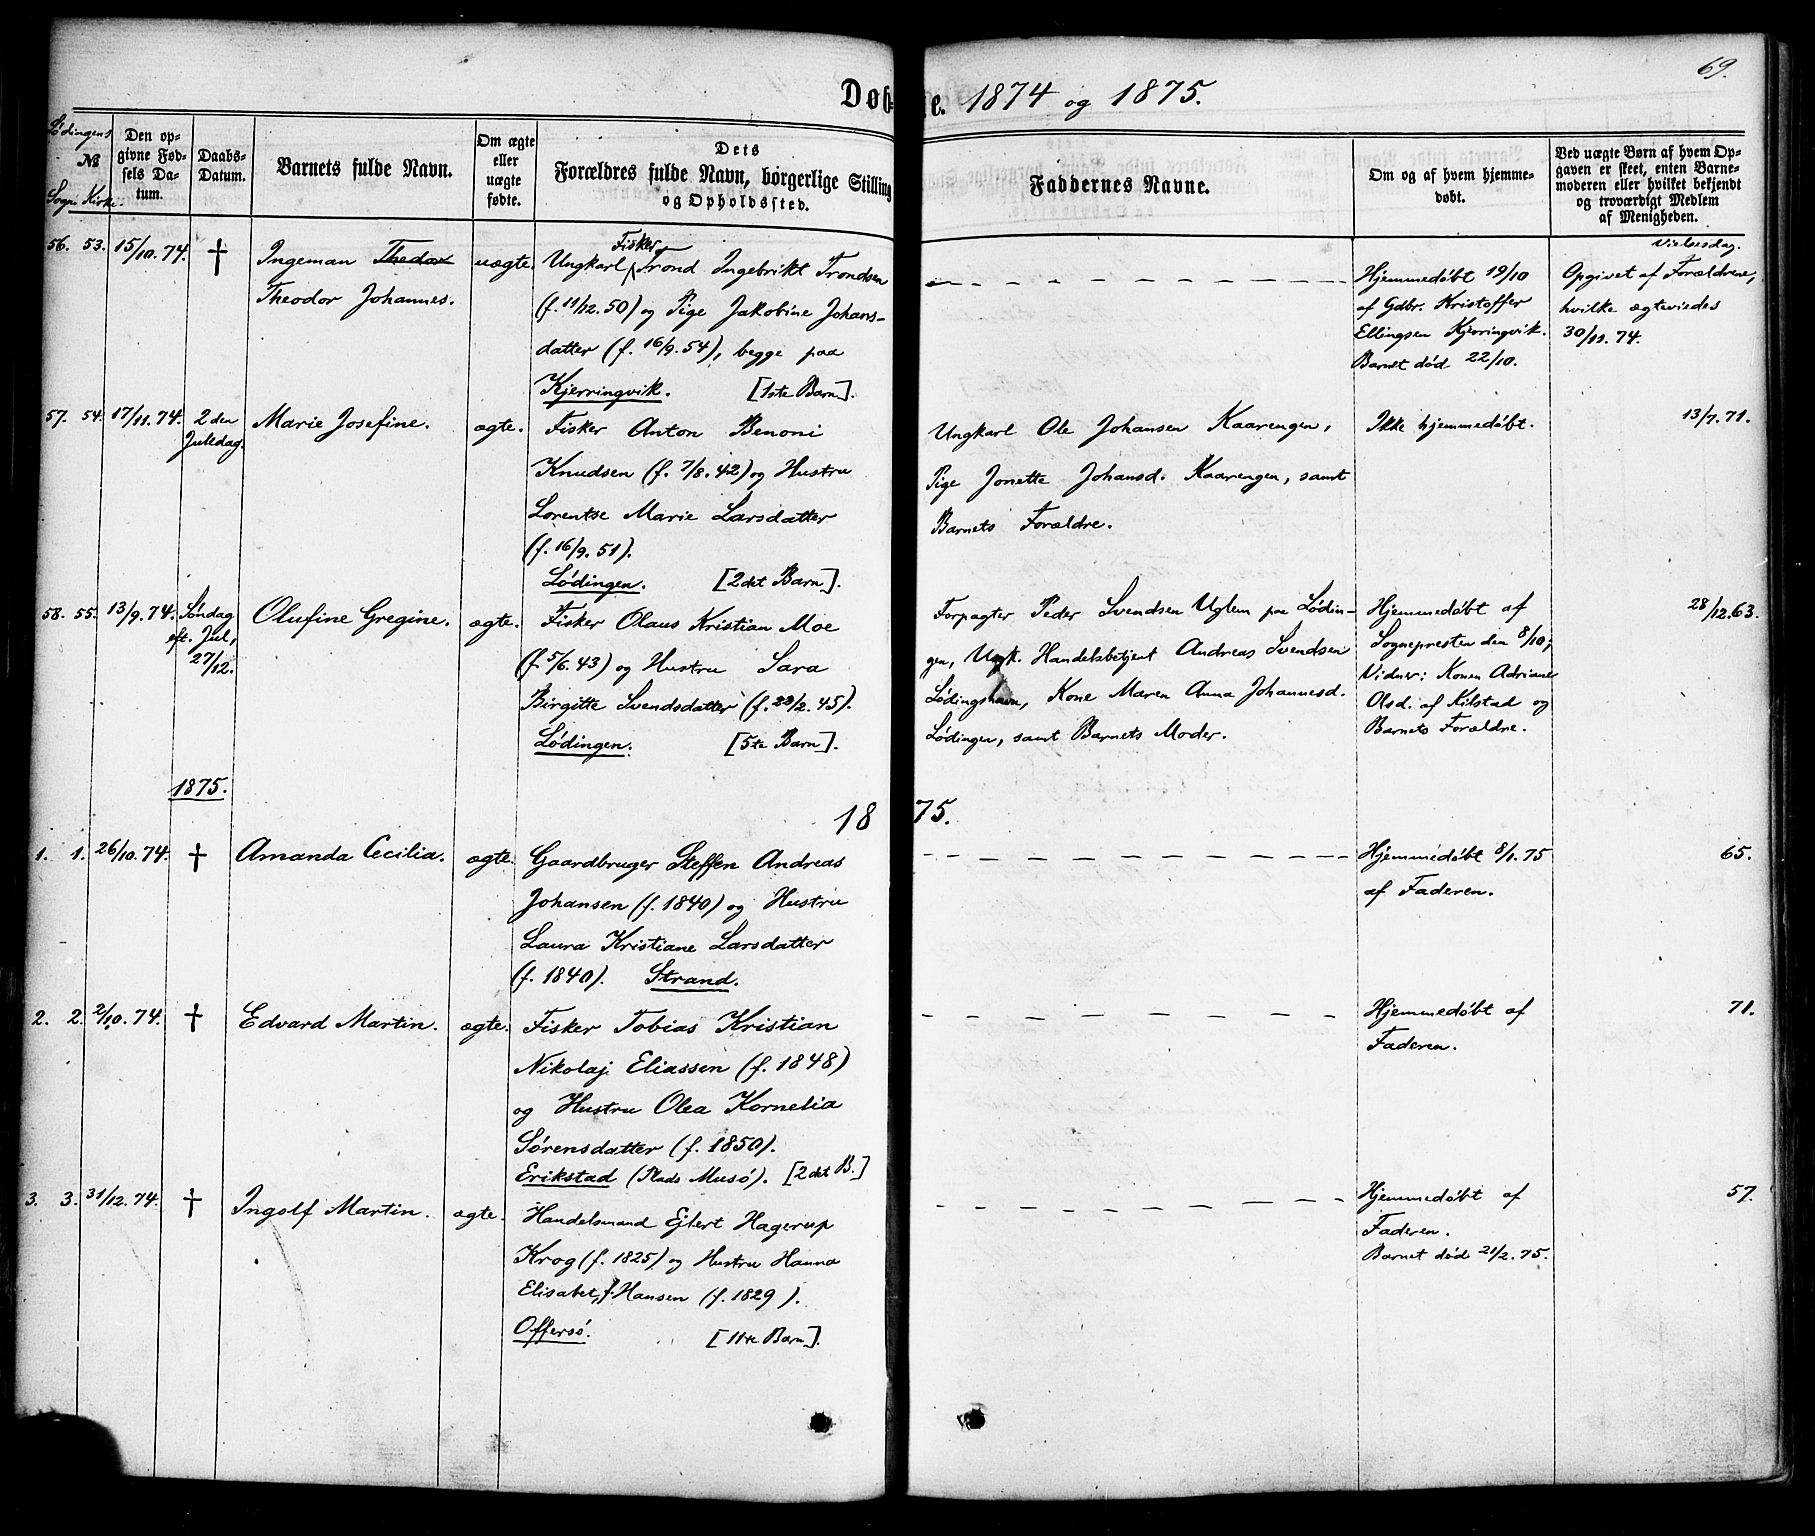 69.
Døb-
e. 1874 og 1875.
Lødingens
№
Sogn. Kirke.
Den op-
givne Fød-
sels Da-
tum.
Daabs-
Datum.
Barnets fulde Navn.
Om ægte
eller
uægte
fødte.
Dets
Forældres fulde Navn, borgerlige Stilling
og Opholdssted.
Faddernes Navne.
Om og af hvem hjemme-
døbt.
Ved uægte Børn af hvem Op-
gaven er skeet, enten Barne-
moderen eller hvilket bekjendt
og troværdigt Medlem
af Menigheden.
56. 53. 15/10. 74. † Ingeman Thedor
Theodor Johannes.
uægte.
Fisker
Ungkarl Trond Ingebrikt Trondsen
(f. 11/12. 50) og Pige Jakobine Johans-
datter (f. 16/9. 54), begge paa
Kjerringvik. [1ste Barn].
Hjemmedøbt 19/10
af Gdbr. Kristoffer
Ellingsen Kjerringvik.
Barnet død 22/10.
Vielsesdag.
Opgivet af Forældrene,
hvilke ægteviedes
30/11. 74.
57. 54. 17/11. 74. 2den
Juledag.
Marie Josefine. ægte.
Fisker Anton Benoni
Knudsen (f. 7/8. 42) og Hustru
Lorentse Marie Larsdatter
(f. 16/9. 51).
Lødingen. [2det Barn].
Ungkarl Ole Johansen Kaarengen,
Pige Jonette Johansd. Kaarengen, samt
Barnets Forældre.
Ikke hjemmedøbt.
13/7. 71.
58. 55. 13/9. 74. Søndag
eft. Jul,
27/12.
Olufine Gregine. ægte.
Fisker Olaus Kristian Moe
(f. 5/6. 43) og Hustru Sara
Birgitte Svendsdatter (f. 22/2. 45).
Lødingen. [5te Barn].
Forpagter Peder Svendsen Uglem paa Lødin-
gen, Ungk. Handelsbetjent Andreas Svendsen
Lødingshavn, Kone Maren Anna Johannesd.
Lødingen, samt Barnets Moder.
Hjemmedøbt af
Sognepresten den 8/10;
Vidner: Konen Adriane
Olsd. af Kilstad og
Barnets Forældre.
28/12. 63.
1875.
1875.
1. 1. 26/10. 74. † Amanda Cecilia. ægte.
Gaardbruger Steffen Andreas
Johansen (f. 1840) og Hustru
Laura Kristiane Larsdatter
(f. 1840). Strand.
Hjemmedøbt 8/1. 75
af Faderen.
65.
2. 2. 2/10. 74. † Edvard Martin. ægte.
Fisker Tobias Kristian
Nikolaj Eliassen (f. 1848)
og Hustru Olea Kornelia
Sørensdatter (f. 1850).
Erikstad (Plads Musø). [2det B.]
Hjemmedøbt af
Faderen.
71.
3. 3. 31/12. 74. † Ingolf Martin. ægte.
Handelsmand Ejlert Hagerup
Krog (f. 1825) og Hustru Hanna
Elisabet, f. Hansen (f. 1829 ).
Offersø. [11te Barn].
Hjemmedøbt af
Faderen.
Barnet død 21/2. 75.
57.